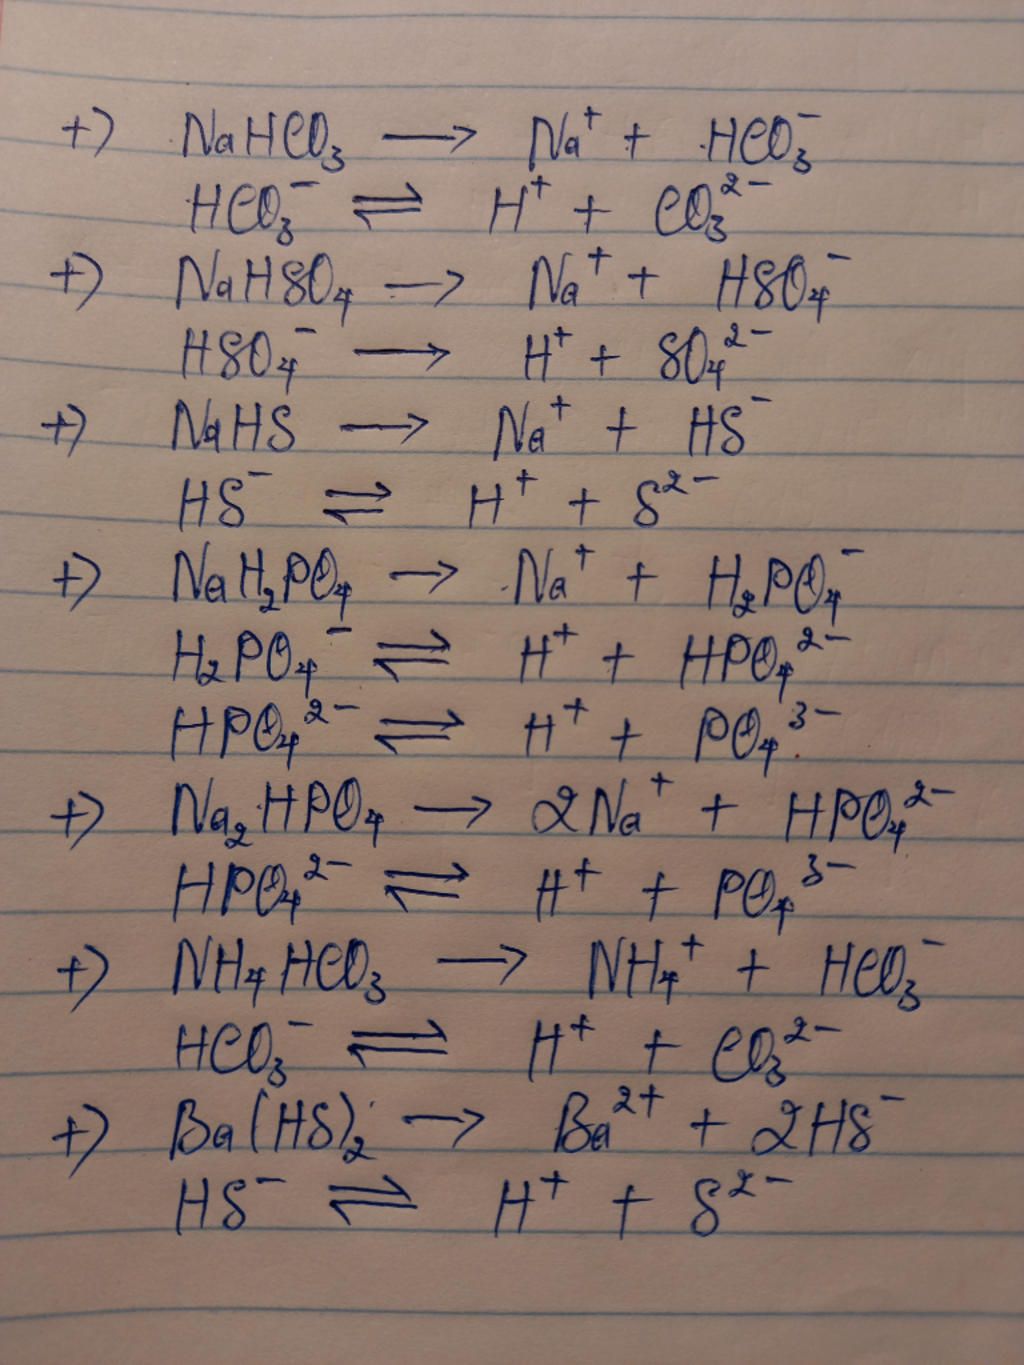 +) NaHCO₃ ⟶ Na⁺ + HCO₃⁻
HCO₃⁻ ⇌ H⁺ + CO₃²⁻
+) NaHSO₄ ⟶ Na⁺ + HSO₄⁻
HSO₄⁻ ⟶ H⁺ + SO₄²⁻
+) NaHS ⟶ Na⁺ + HS⁻
HS⁻ ⇌ H⁺ + S²⁻
+) NaH₂PO₄ ⟶ Na⁺ + H₂PO₄⁻
H₂PO₄⁻ ⇌ H⁺ + HPO₄²⁻
HPO₄²⁻ ⇌ H⁺ + PO₄³⁻
+) Na₂HPO₄ ⟶ 2Na⁺ + HPO₄²⁻
HPO₄²⁻ ⇌ H⁺ + PO₄³⁻
+) NH₄HCO₃ ⟶ NH₄⁺ + HCO₃⁻
HCO₃⁻ ⇌ H⁺ + CO₃²⁻
+) Ba(HS)₂ ⟶ Ba²⁺ + 2HS⁻
HS⁻ ⇌ H⁺ + S²⁻